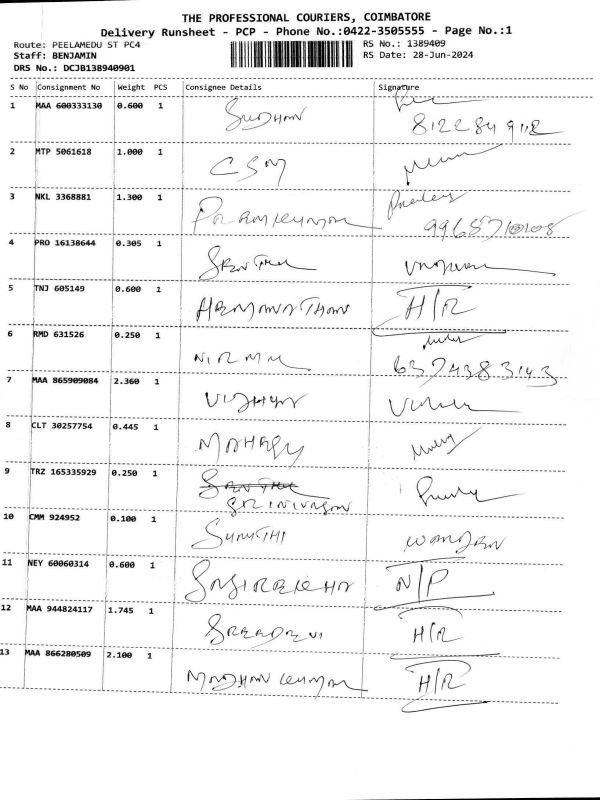 THE PROFESSIONAL COURIERS, COIMBATORE
Delivery Runsheet - PCP - Phone No.:0422-3505555 - Page No.:1
Route: PEELAMEDU ST PC4 RS No.: 1389409
Staff: BENJAMIN RS Date: 28-Jun-2024
DRS No.: DCJB138940901
S No Consignment No Weight PCS Consignee Details Signature
1 MAA 600333130 0.600 1 SUDHAN
2 MTP 5061618 1.000 1 CSM
3 NKL 3368881 1.300 1
4 PRO 16138644 0.305 1
5 TNJ 605149 0.600 1 H/R
6 RMD 631526 0.250 1 NIRMAL 6374383143
7 MAA 865909084 2.360 1
8 CLT 30257754 0.445 1
9 TRZ 165335929 0.250 1
SRINIVASAN
10 CMM 924952 0.100 1
11 NEY 60060314 0.600 1 N/P
12 MAA 944824117 1.745 1 SREEDEVI H/R
13 MAA 866280509 2.100 1 H/R